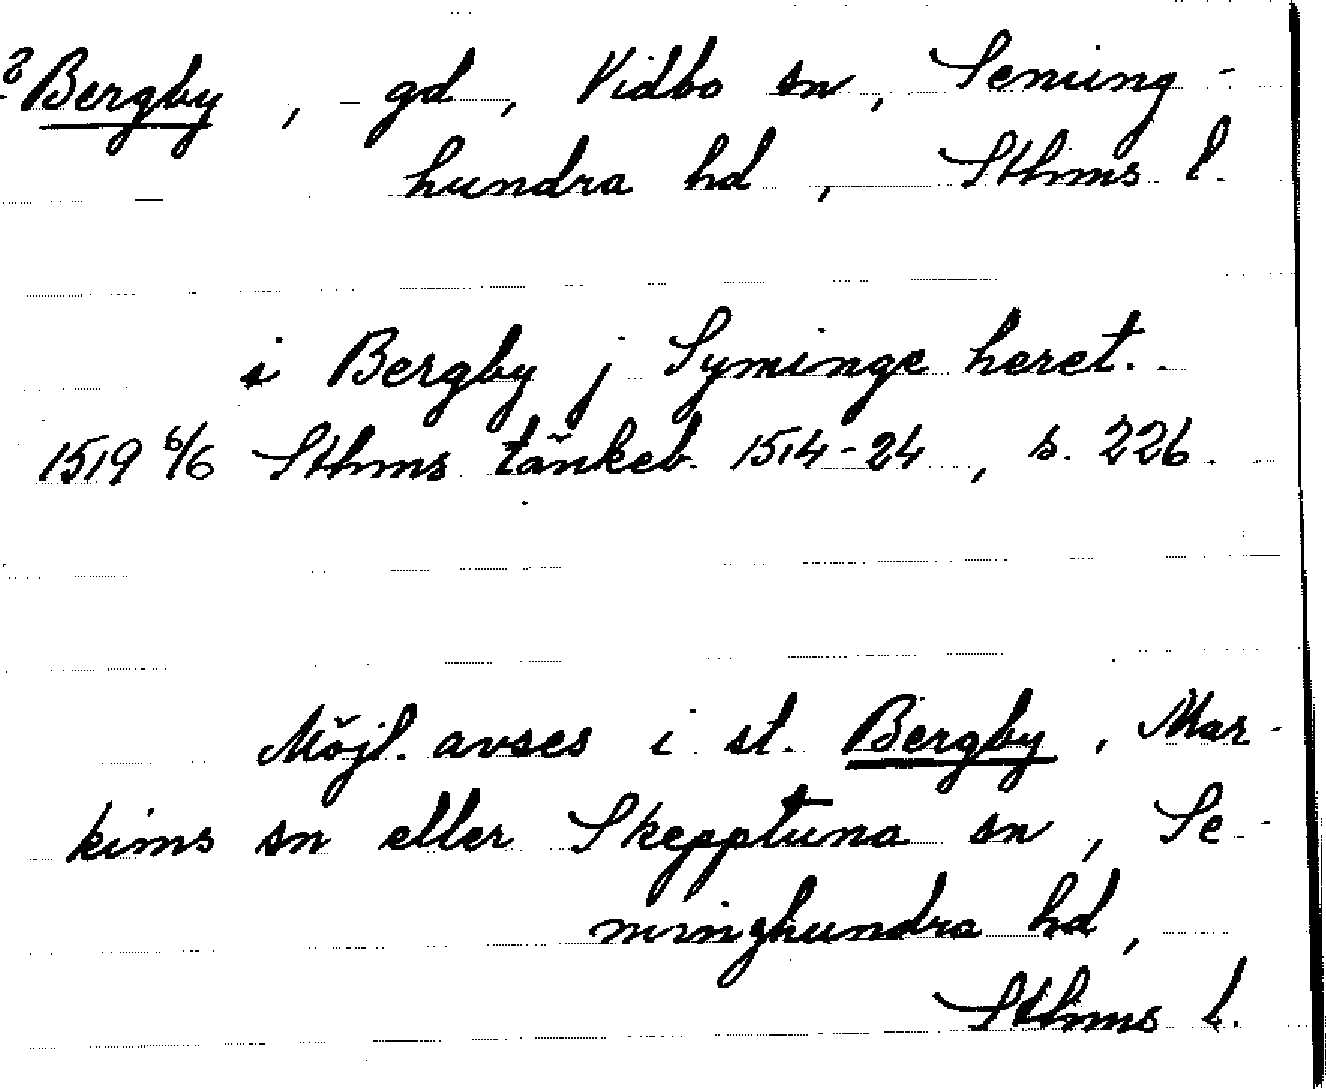 ? Bergby, gd, Vidbo sn, Seming-
hundra hd, Sthms l.
i Bergby j Syminge heret.
1519 6/6 Sthms tänkeb. 1514-24, s. 226.
Möjl. avses i st. Bergby, Mar-
kims sn eller Skepptuna sn, Se-
minghundra hd,
Sthms l.